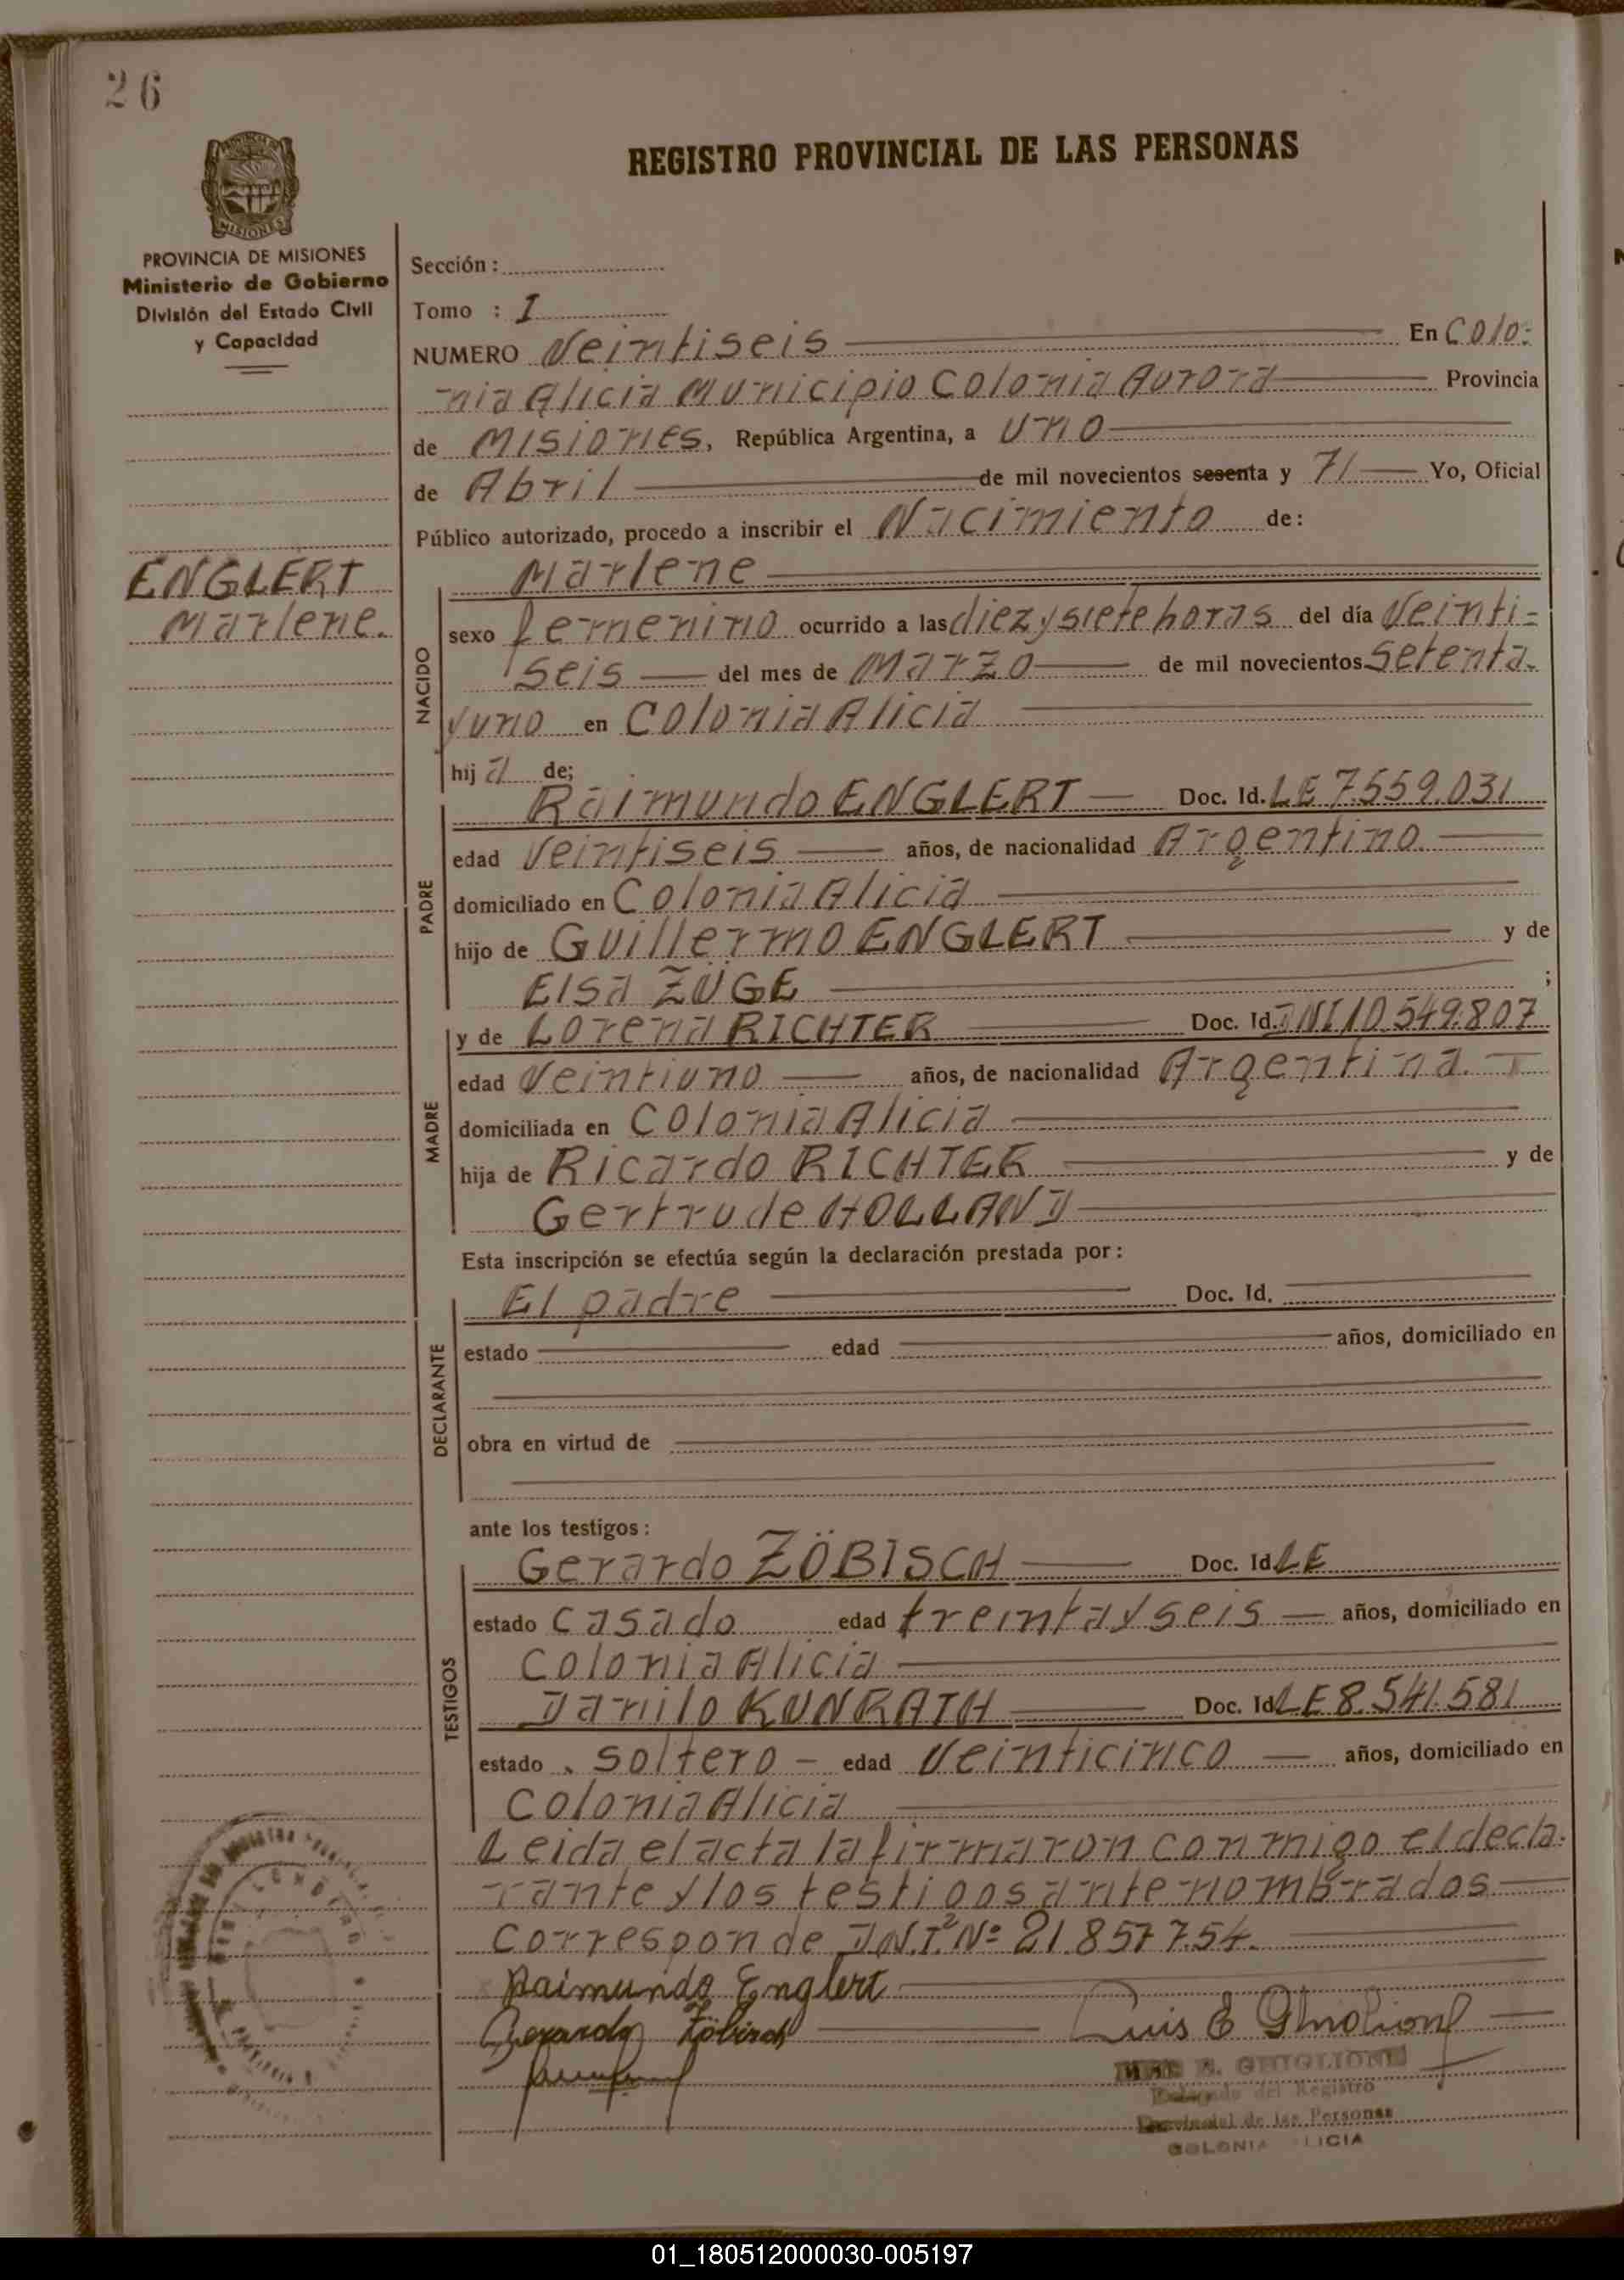 26
REGISTRO PROVINCIAL DE LAS PERSONAS
MISIONES
PROVINCIA DE MISIONES
Ministerio de Gobierno
División del Estado Civil
y Capacidad
ENGLERT
Marlene.
Sección :
Tomo : I
NUMERO Veintiseis En Colo-
nia Alicia Municipio Colonia Aurora Provincia
de MISIONES, República Argentina, a UNO
de Abril de mil novecientos sesenta y 71 Yo, Oficial
Público autorizado, procedo a inscribir el Nacimiento de:
NACIDO
Marlene
sexo femenino ocurrido a las diez y siete horas del día Veinti-
seis del mes de Marzo de mil novecientos Setenta
y uno en Colonia Alicia
hij a de;
PADRE
Raimundo ENGLERT Doc. Id. LE 7.559.031
edad Veintiseis años, de nacionalidad Argentino
domiciliado en Colonia Alicia
hijo de Guillermo ENGLERT y de
Elsa ZÜGE ;
MADRE
y de Lorena RICHTER Doc. Id. DNI 10.549.807
edad Veintiuno años, de nacionalidad Argentina.
domiciliada en Colonia Alicia
hija de Ricardo RICHTER y de
Gertrude HOLLAND
Esta inscripción se efectúa según la declaración prestada por :
DECLARANTE
El padre Doc. Id.
estado edad años, domiciliado en
obra en virtud de
ante los testigos :
TESTIGOS
Gerardo ZÖBISCH Doc. Id LE
estado Casado edad treinta y seis años, domiciliado en
Colonia Alicia
Danilo KUNRATH Doc. Id LE 8.541.581
estado soltero - edad Veinticinco años, domiciliado en
Colonia Alicia
Leida el acta la firmaron conmigo el decla-
rante y los testigos ante nombrados
Corresponde D.N.I. Nº 21.857.754.
Raimundo Englert
Gerardo Zöbisch Luis E Ghiglione
LUIS E. GHIGLIONE
Delegado del Registro
Provincial de las Personas
COLONIA ALICIA
01_180512000030-005197